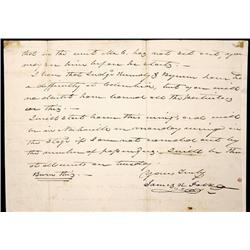 that in the event Mr C. has not set out, you
may see him before he starts.
I hear that Judge Kennedy & Bynum have had
a difficulty at Columbia, but you will
no doubt have learned all the particulars
of this.
I will start home this evening, and will
be in Nashville on monday evening
the Stage if I am not crowded out by
the number of passengers. I will be there
at all events on tuesday.
Yours Truly
Burn this
James K. Polk